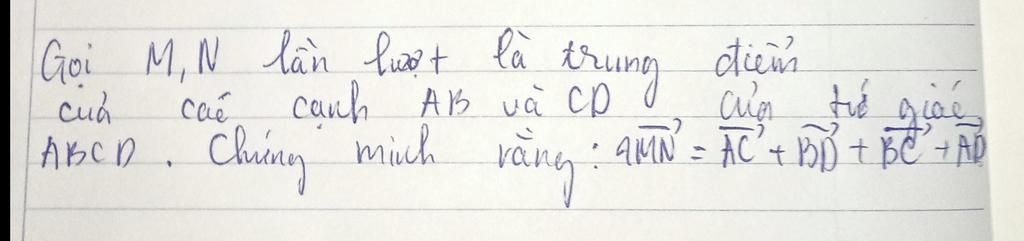 Gọi M, N lần lượt là trung điểm
của các cạnh AB và CD của tứ giác
ABCD. Chứng minh rằng: 4\overrightarrow{MN} = \overrightarrow{AC} + \overrightarrow{BD} + \overrightarrow{BC} + \overrightarrow{AD}